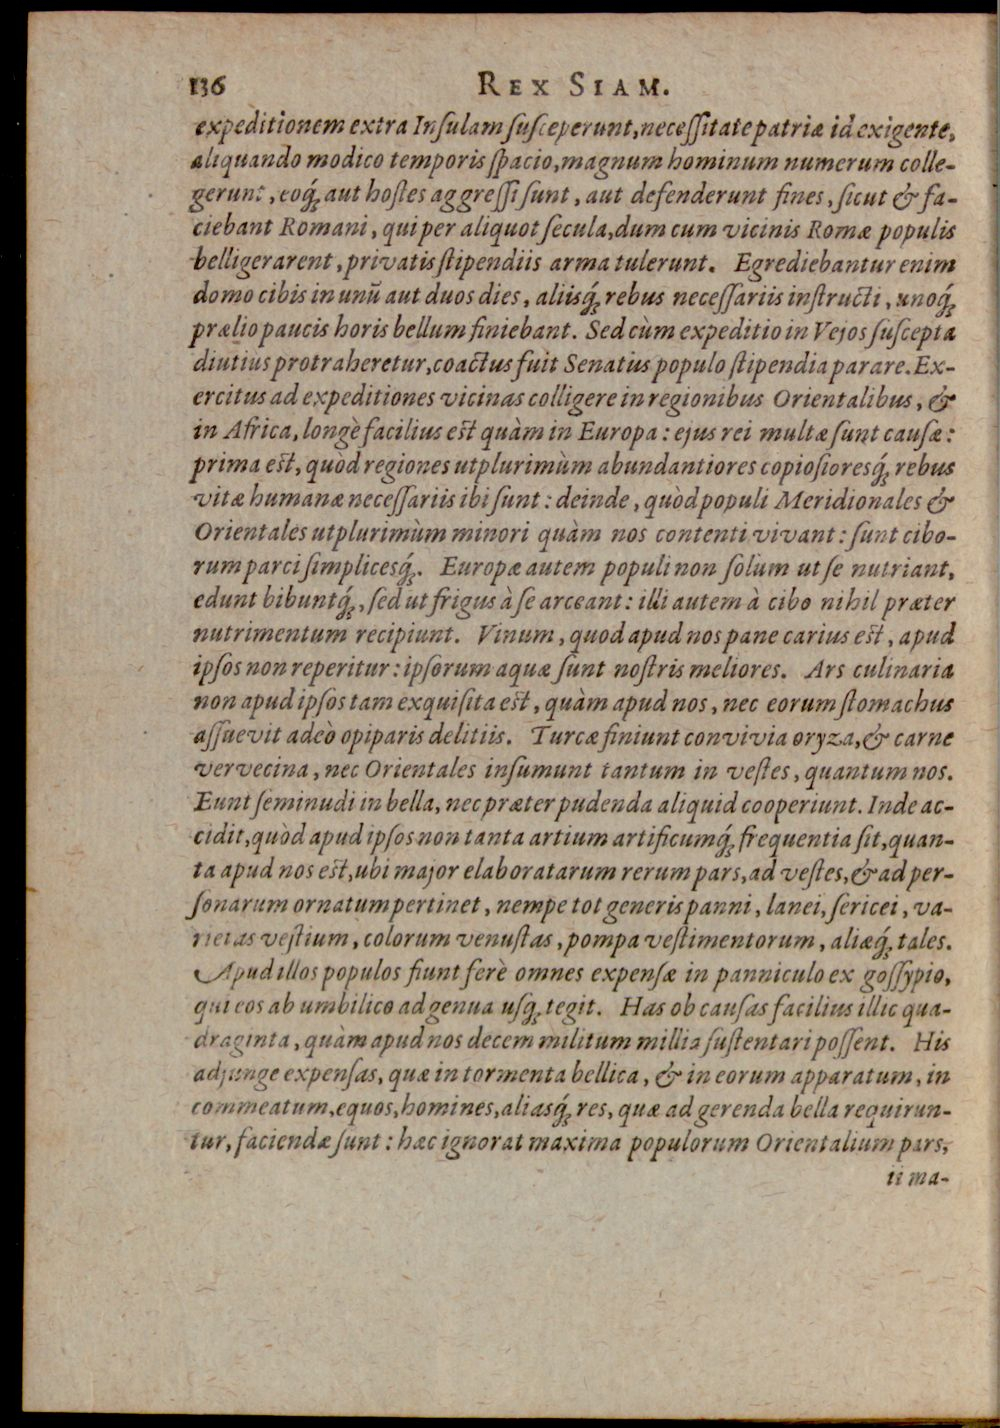 136 REX SIAM.
expeditionem extra Inſulam ſuſceperunt, neceſſitate patriæ id exigente,
aliquando modico temporis ſpacio, magnum hominum numerum colle-
gerunt, eoq́; aut hoſtes aggreſſi ſunt, aut defenderunt fines, ſicut & fa-
ciebant Romani, qui per aliquot ſecula, dum cum vicinis Romæ populis
belligerarent, privatis ſtipendiis arma tulerunt. Egrediebantur enim
domo cibis in unũ aut duos dies, aliisq́; rebus neceſſariis inſtructi, unoq́;
prælio paucis horis bellum finiebant. Sed cùm expeditio in Vejos ſuſcepta
diutius protraheretur, coactus fuit Senatus populo ſtipendia parare. Ex-
ercitus ad expeditiones vicinas colligere in regionibus Orientalibus, &
in Africa, longè facilius eſt quàm in Europa: ejus rei multæ ſunt cauſæ:
prima eſt, quòd regiones utplurimùm abundantiores copioſioresq́; rebus
vitæ humanæ neceſſariis ibi ſunt: deinde, quòd populi Meridionales &
Orientales utplurimùm minori quàm nos contenti vivant: ſunt cibo-
rum parci ſimplicesq́;. Europæ autem populi non ſolum ut ſe nutriant,
edunt bibuntq́;, ſed ut frigus à ſe arceant: illi autem à cibo nihil præter
nutrimentum recipiunt. Vinum, quod apud nos pane carius eſt, apud
ipſos non reperitur: ipſorum aquæ ſunt noſtris meliores. Ars culinaria
non apud ipſos tam exquiſita eſt, quàm apud nos, nec eorum ſtomachus
aſſuevit adeò opiparis delitiis. Turcæ finiunt convivia oryza, & carne
vervecina, nec Orientales inſumunt tantum in veſtes, quantum nos.
Eunt ſeminudi in bella, nec præter pudenda aliquid cooperiunt. Inde ac-
cidit, quòd apud ipſos non tanta artium artificumq́; frequentia ſit, quan-
ta apud nos eſt, ubi major elaboratarum rerum pars, ad veſtes, & ad per-
ſonarum ornatum pertinet, nempe tot generis panni, lanei, ſericei, va-
rietas veſtium, colorum venuſtas, pompa veſtimentorum, aliæq́; tales.
Apud illos populos fiunt ferè omnes expenſæ in panniculo ex goſſypio,
qui eos ab umbilico ad genua uſq́; tegit. Has ob cauſas facilius illic qua-
draginta, quàm apud nos decem militum millia ſuſtentari poſſent. His
adjunge expenſas, quæ in tormenta bellica, & in eorum apparatum, in
commeatum, equos, homines, aliasq́; res, quæ ad gerenda bella requirun-
tur, faciendæ ſunt: hæc ignorat maxima populorum Orientalium pars,
ii ma-